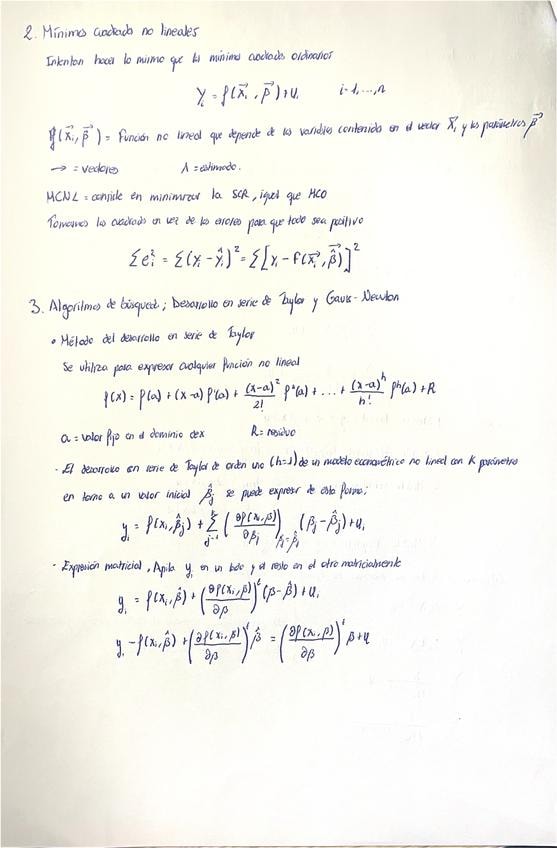 2. Mínimos cuadrados no lineales
Intentan hacer lo mismo que los mínimos cuadrados ordinarios
Yᵢ = f(x⃗ᵢ, β⃗) + uᵢ i=1,...,n
f(x⃗ᵢ, β⃗) = Función no lineal que depende de las variables contenidas en el vector x⃗ᵢ y los parámetros β⃗
→ = vectores ∧ = estimado.
MCNL = consiste en minimizar la SCR, igual que MCO
Tomamos los cuadrados en vez de los errores para que todo sea positivo
Σeᵢ² = Σ(yᵢ - ŷᵢ)² = Σ[yᵢ - f(x⃗ᵢ, β̂⃗)]²
3. Algoritmos de búsqueda; Desarrollo en serie de Taylor y Gauss-Newton
• Método del desarrollo en serie de Taylor
Se utiliza para expresar cualquier función no lineal
f(x) = f(a) + (x-a) f'(a) + (x-a)²/2! f²(a) + ... + (x-a)ʰ/h! fʰ(a) + R
a = valor fijo en el dominio de x R = residuo
- El desarrollo en serie de Taylor de orden uno (h=1) de un modelo econométrico no lineal con K parámetros
en torno a un valor inicial β̂ⱼ se puede expresar de esta forma;
yᵢ = f(xᵢ, β̂ⱼ) + Σⱼ₌₁ᵏ (∂f(xᵢ, β)/∂βⱼ)βⱼ=β̂ⱼ (βⱼ - β̂ⱼ) + uᵢ
- Expresión matricial, Apila yᵢ en un lado y el resto en el otro matricialmente
yᵢ = f(xᵢ, β̂) + (∂f(xᵢ, β)/∂β)ᵗ (β - β̂) + uᵢ
yᵢ - f(xᵢ, β̂) + (∂f(xᵢ, β)/∂β)ᵗ β̂ = (∂f(xᵢ, β)/∂β)ᵗ β + u